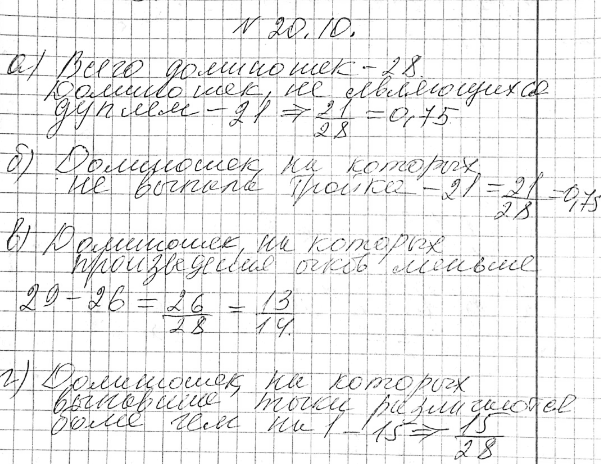 № 20.10.
а) Всего доминошек - 28.
Доминошек, не являющихся
дуплем - 21 ⇒ 21/28 = 0,75
б) Доминошек, на которых
не выпала тройка - 21 = 21/28 = 0,75
в) Доминошек, на которых
произведения очков меньше
29 - 26 = 26/28 = 13/14.
г) Доминошек, на которых
выпавшие точки различаются
более чем на 1 - 15 ⇒ 15/28